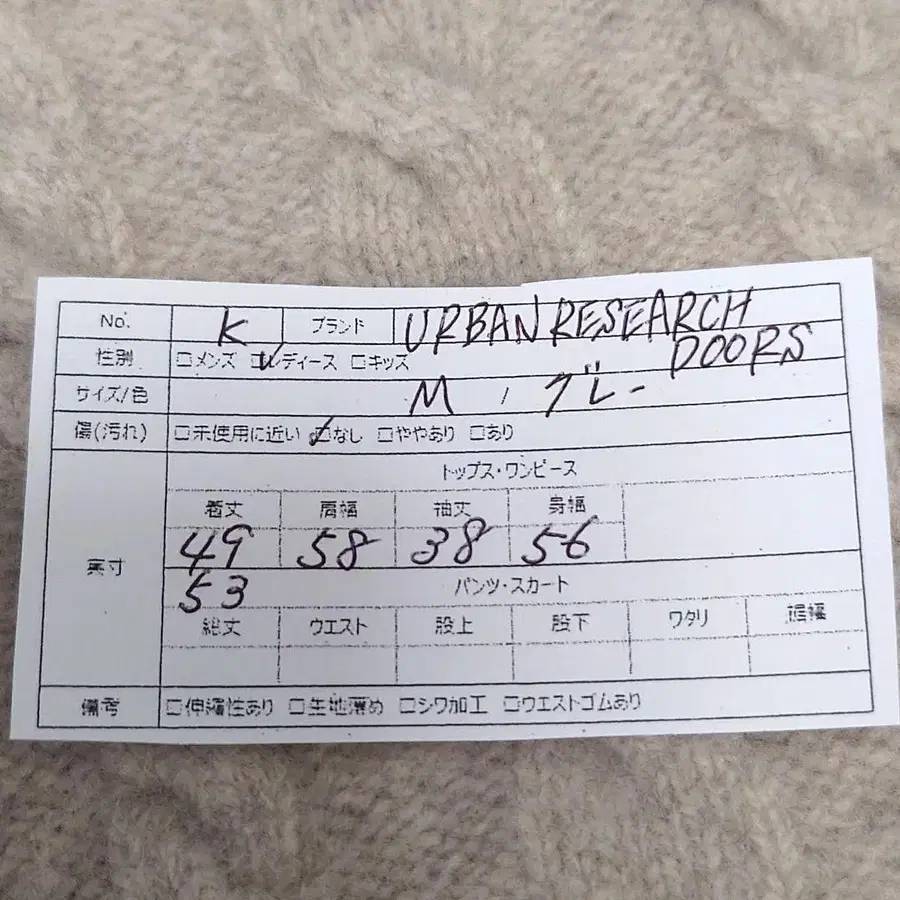 No. K ブランド URBAN RESEARCH
DOORS
性別 □メンズ ☑レディース □キッズ
サイズ/色 M / グレー
傷(汚れ) □未使用に近い ☑なし □ややあり □あり
トップス・ワンピース
着丈 肩幅 袖丈 身幅
49 58 38 56
実寸
53 パンツ・スカート
総丈 ウエスト 股上 股下 ワタリ 裾幅
備考 □伸縮性あり □生地薄め □シワ加工 □ウエストゴムあり